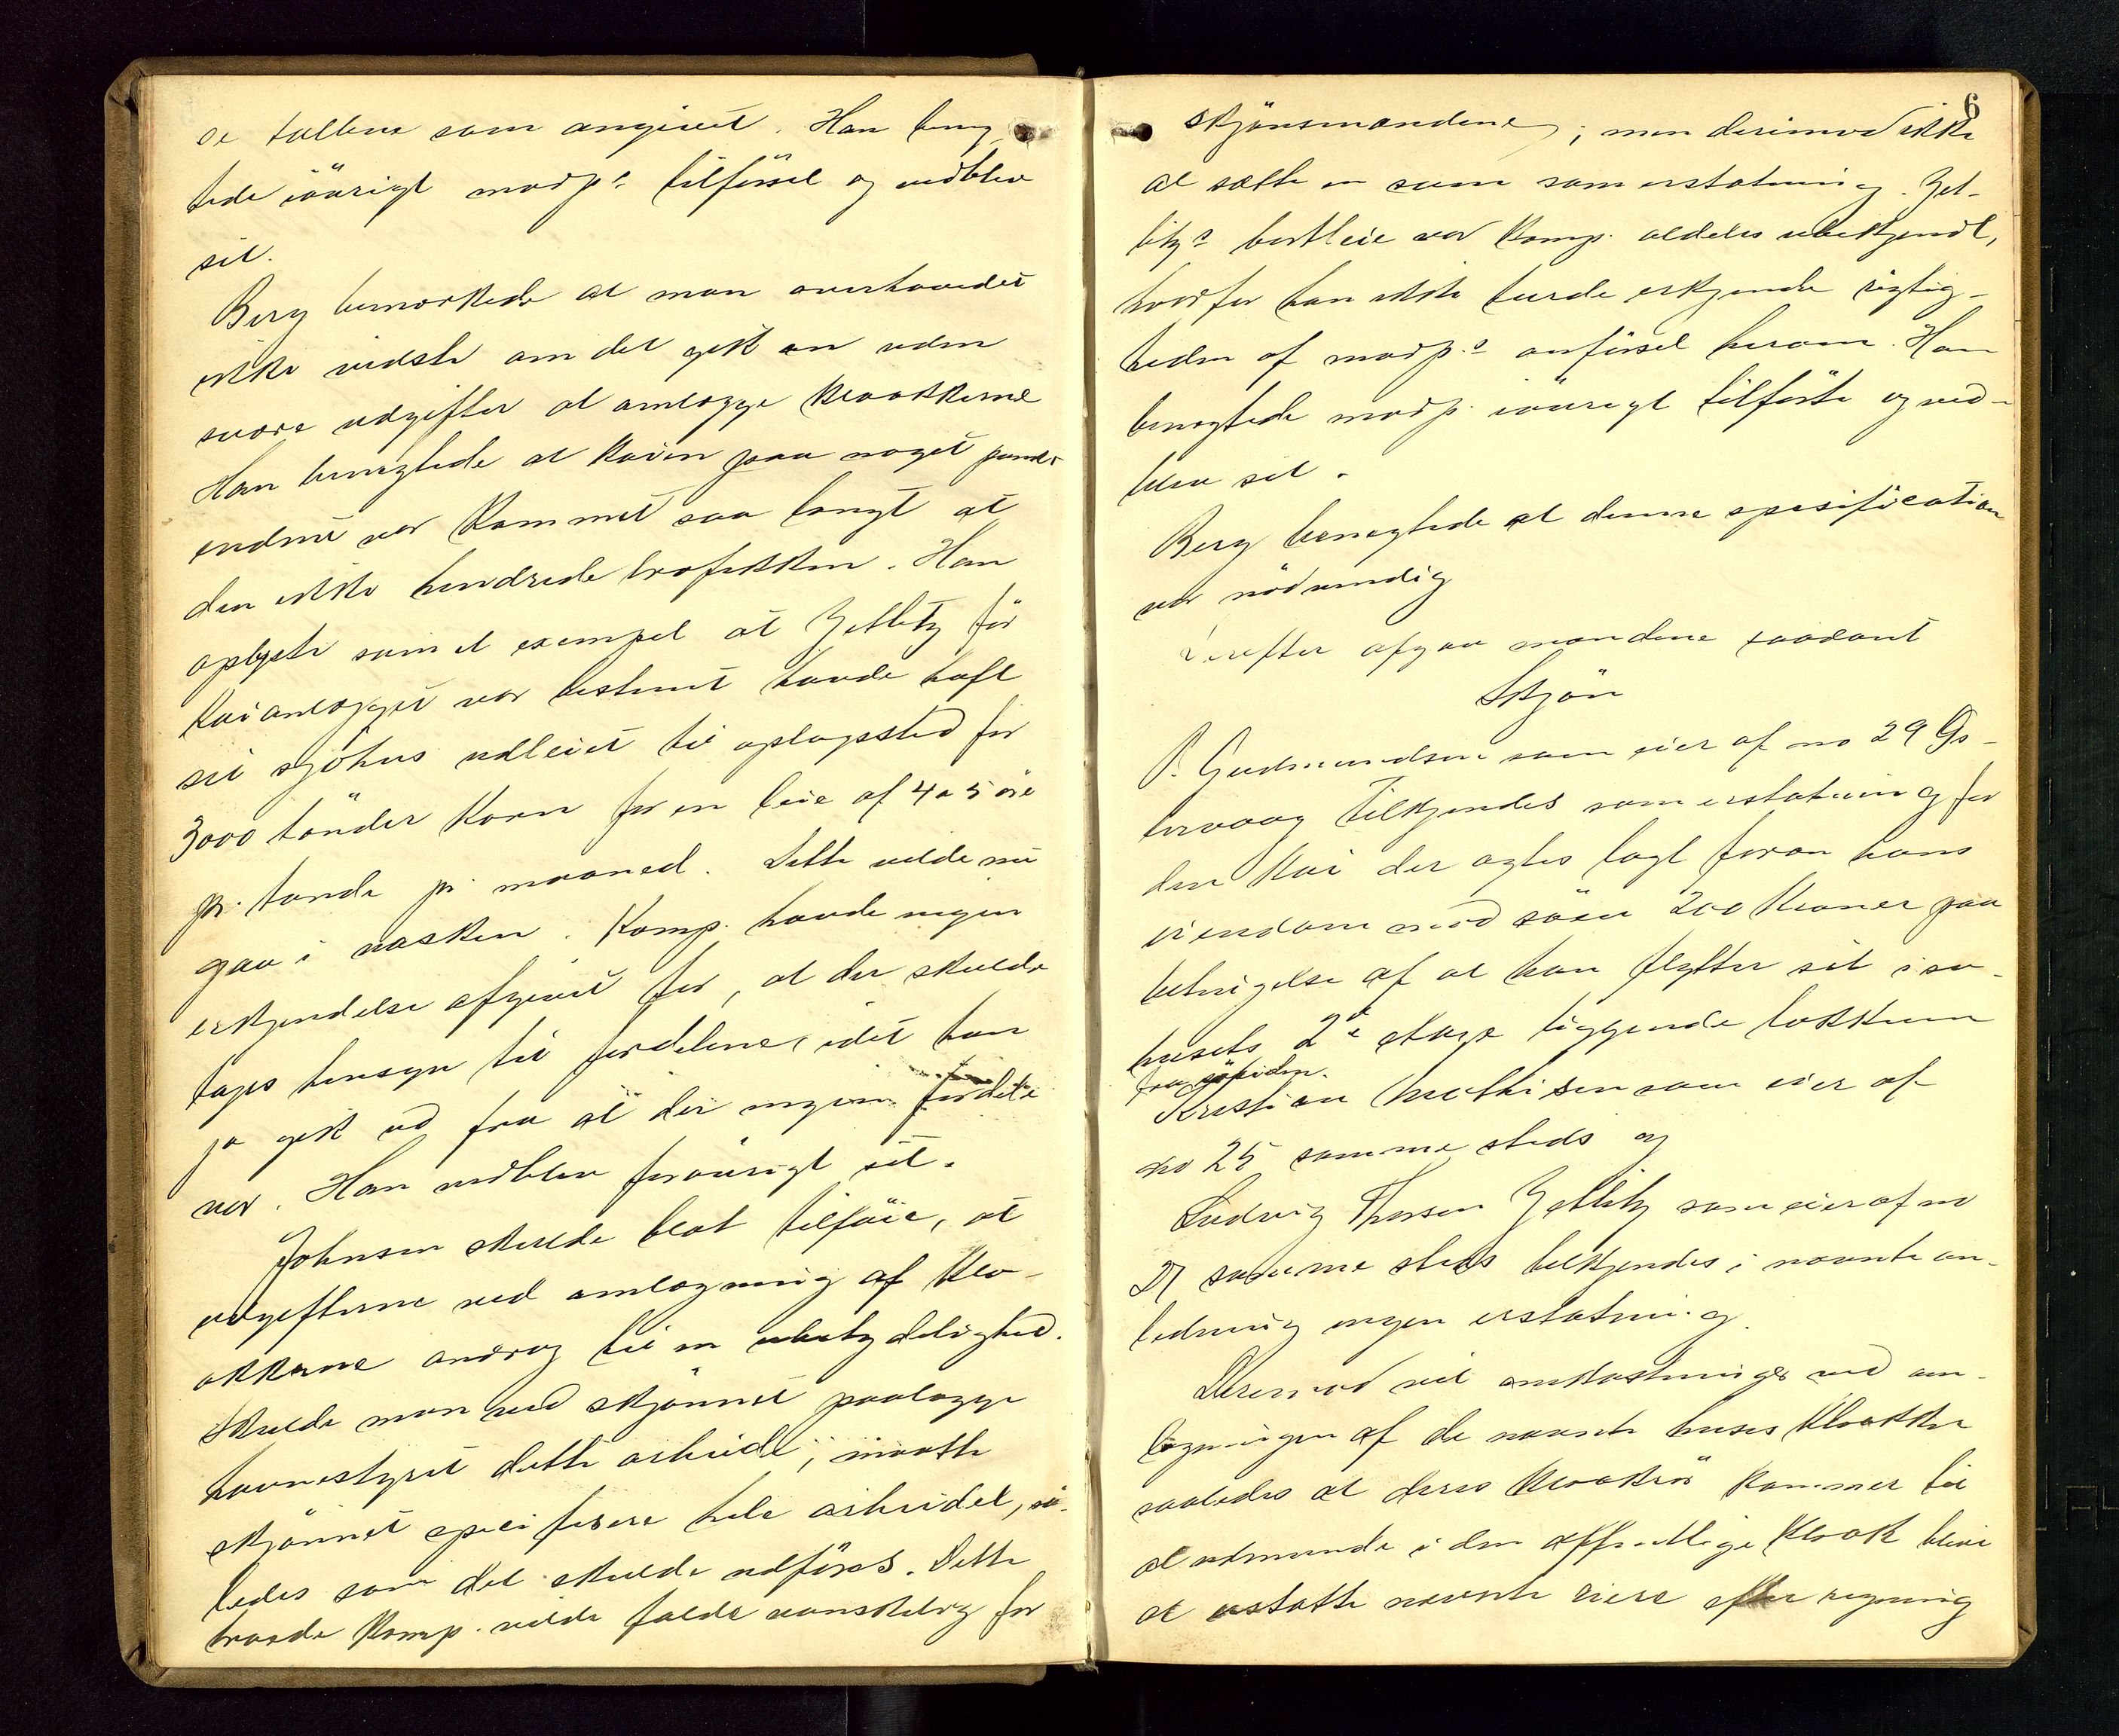 se tallene som angivet. Han benæg-
tede iøvrigt modp's tilførsel og vedblev
sit.
Berg bemærkede at man overhovedet
ikke vidste om det gik an uden
svære udgifter at omlægge kloakkerne
Han benægtede at kaien paa noget punkt
endnu var kommet saa langt at
den ikke hindrede trafikken. Han
oplyste som et exempel at Zetlitz før
kaianlægget var bestemt havde haft
sit sjøhus udleiet til oplagssted for
3000 tønder korn for en leie af 4 a 5 øre
pr. tønde pr maaned. Dette vilde nu
gaa i vasken. Komp. havde ingen
erkjendelse afgivet for, at der skulde
tages hensyn til fordelene, idet han
jo gik ud fra at der ingen fordele
var. Han vedblev forøvrigt sit.
Johnsen skulde blot tilføie, at
udgifterne ved omlægning af klo-
akkerne androg til en ubetydelighed.
Skulde man ved skjønnet paalægge
havnestyret dette arbeide, maatte
skjønnet specifisere hele arbeidet, saa-
ledes som det skulde udføres. Dette
troede Komp. vilde falde vanskelig for
6
skjønsmændene; men derimod ikke
at sætte en sum som erstatning. Zet-
litz's bortleie var Komp. aldeles ubekjendt,
hvorfor han ikke turde erkjende rigtig-
heden af modp.s anførsel herom. Han
benægtede modp. iøvrigt tilførte og ved-
blev sit.
Berg benægtede at denne spesification
var nødvendig
Derefter afgav mændene saadant
Skjøn
P. Gudmundsen som eier af no 29 Gs-
tervaag tilkjendes som erstatning for
den kai der agtes lagt foran hans
eiendom mod søen 200 kroner paa
betingelse af at han flytter sit i sø-
husets 2de etage liggende lokkum
fra søsiden.
Kristian Mathisen som eier af
no 25 samme steds og
Ludvig Thorsen Zetlitz som eier af no
27 samme steds tilkjendes i nævnte an-
ledning ingen erstatning.
Derimod vil omkostninger ved om-
lægningen af de nævnte huses kloakker
saaledes at deres kloakrør kommer til
at udmunde i den offentlige kloak blive
at erstatte nævnte eiere efter regning